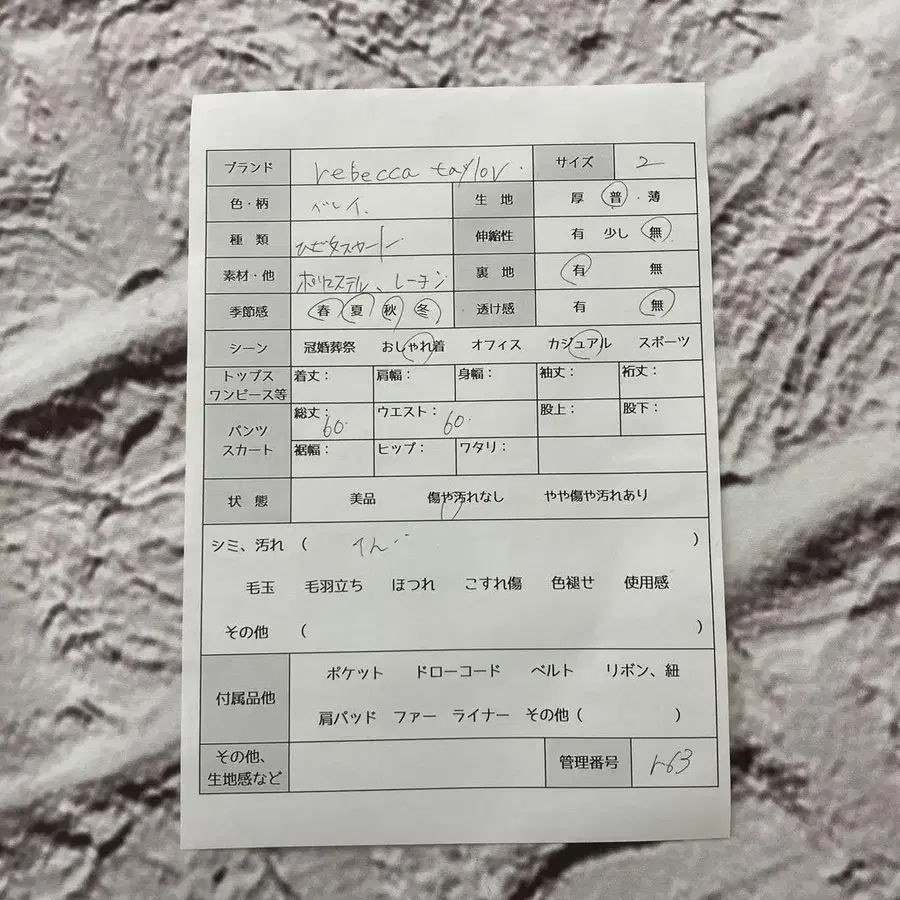 ブランド rebecca taylor. サイズ 2
色・柄 グレイ. 生 地 厚 普 薄
種 類 ひざ丈スカート 伸縮性 有 少し 無
素材・他 ポリエステル、レーヨン 裏 地 有 無
季節感 春 夏 秋 冬 透け感 有 無
シーン 冠婚葬祭 おしゃれ着 オフィス カジュアル スポーツ
トップス ワンピース等 着丈: 肩幅: 身幅: 袖丈: 裄丈:
パンツ スカート 総丈: 60 ウエスト: 60 股上: 股下:
裾幅: ヒップ: ワタリ:
状 態 美品 傷や汚れなし やや傷や汚れあり
シミ、汚れ ( )
毛玉 毛羽立ち ほつれ こすれ傷 色褪せ 使用感
その他 ( )
付属品他 ポケット ドローコード ベルト リボン、紐
肩パッド ファー ライナー その他 ( )
その他、 生地感など 管理番号 r63